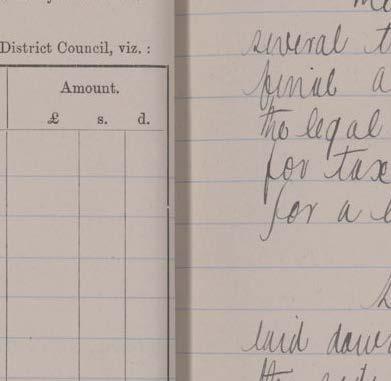 District Council, viz. :
Amount.
£ s. d.
several
final a
the legal
for taxe
for a
laid down
the